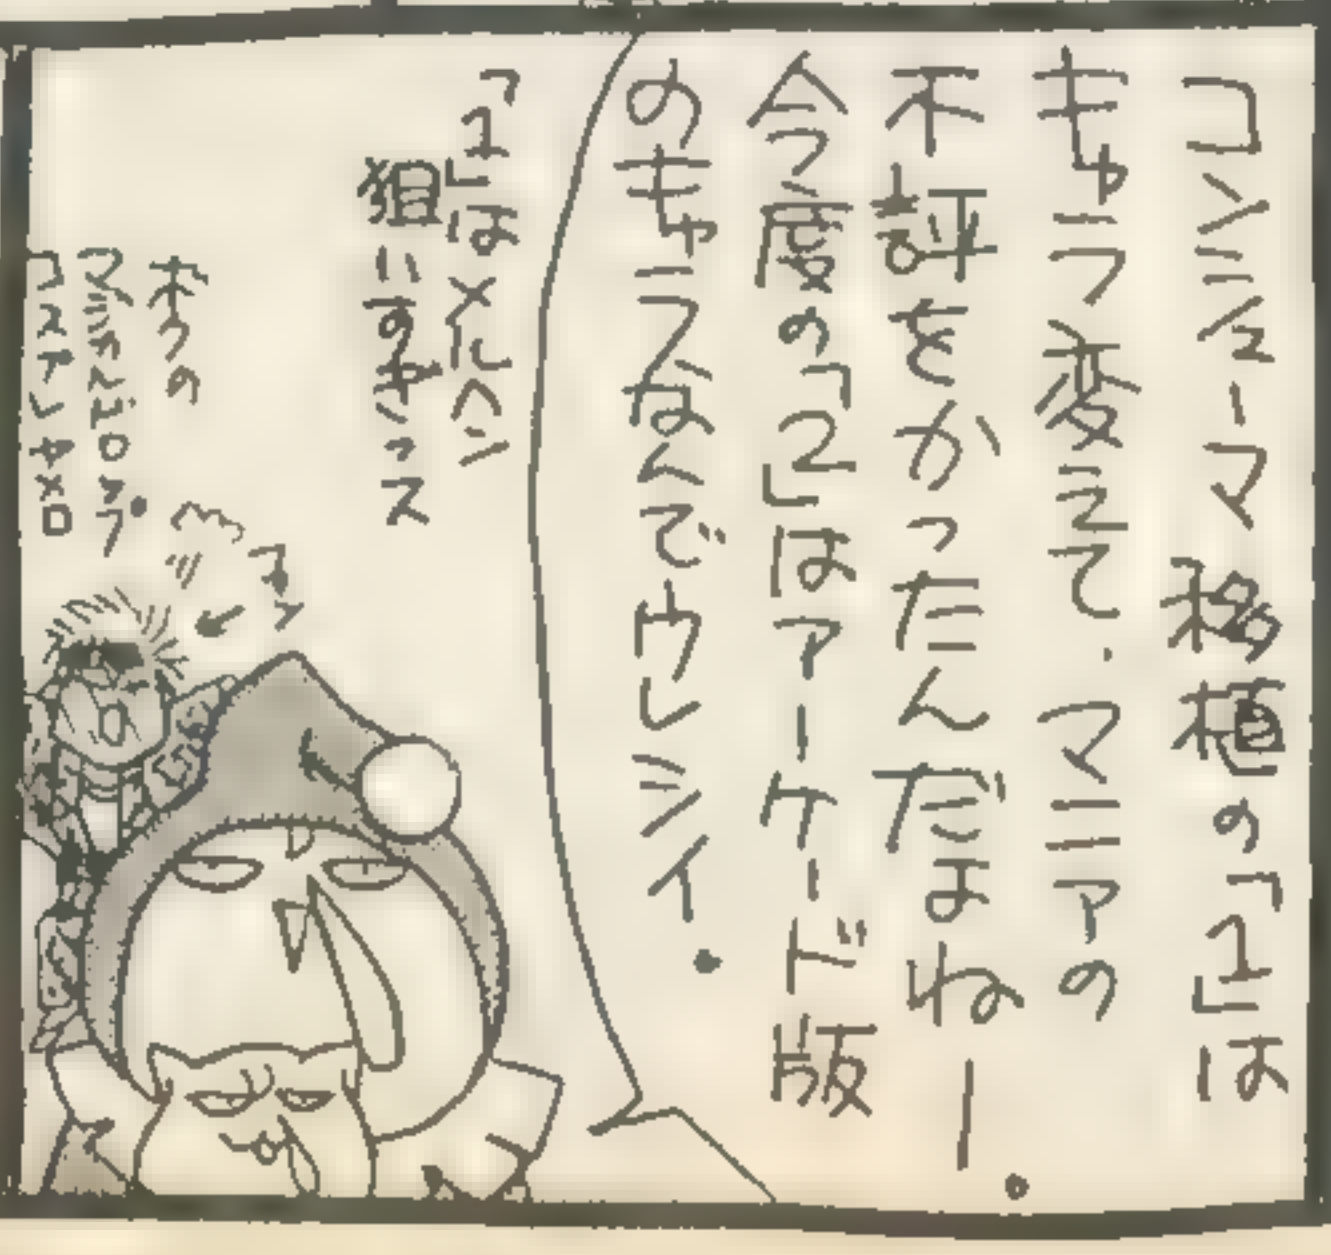 コンシューマ移植の「1」は
キャラ変えて、マニアの
不評をかったんだよねー。
今度の「2」はアーケード版
のキャラなんでウレシイ。
「1」はメルヘン
狙いすぎっス
ボクの
コスプレヤメロ